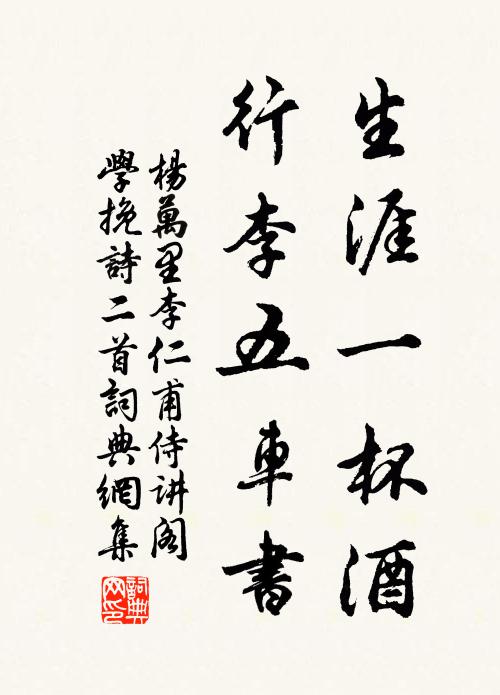 生涯一杯酒
行李五車書
楊萬里李仁甫侍講閣
學挽詩二首詞典網集
詞典網印